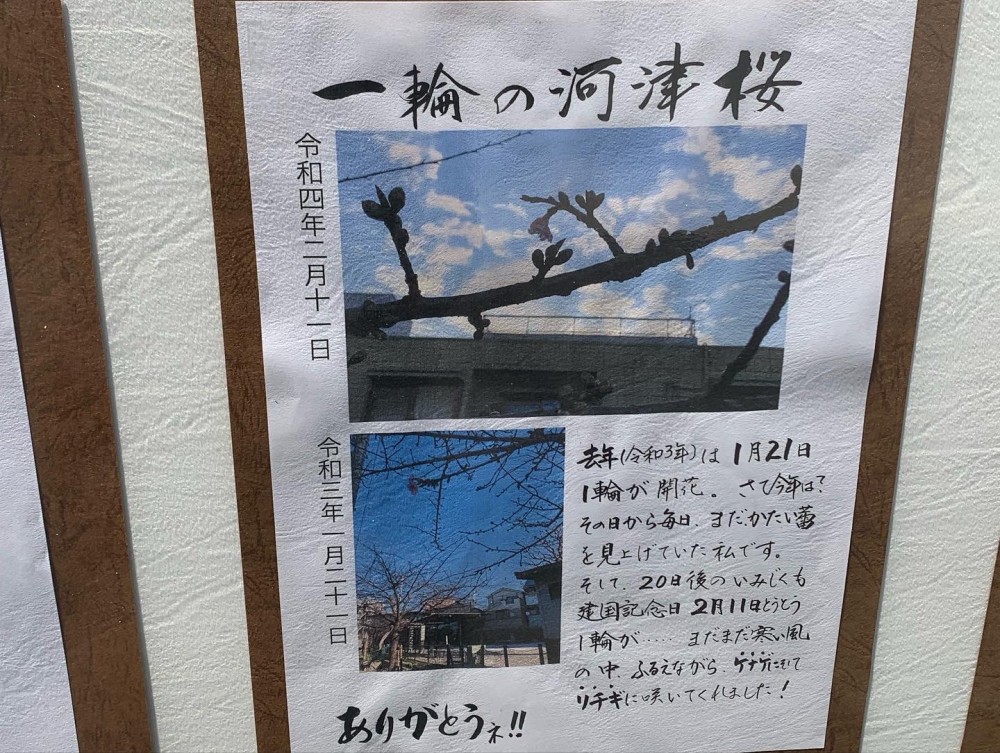 一輪の河津桜
令和四年二月十一日
令和三年一月二十一日
去年(令和3年)は1月21日
1輪が開花。さて今年は?
その日から毎日、まだかたい蕾
を見上げていた私です。
そして、20日後のいみじくも
建国記念日2月11日とうとう
1輪が……まだまだ寒い風
の中、ふるえながら、ケナゲにそして
リチギに咲いてくれました!
ありがとうネ!!